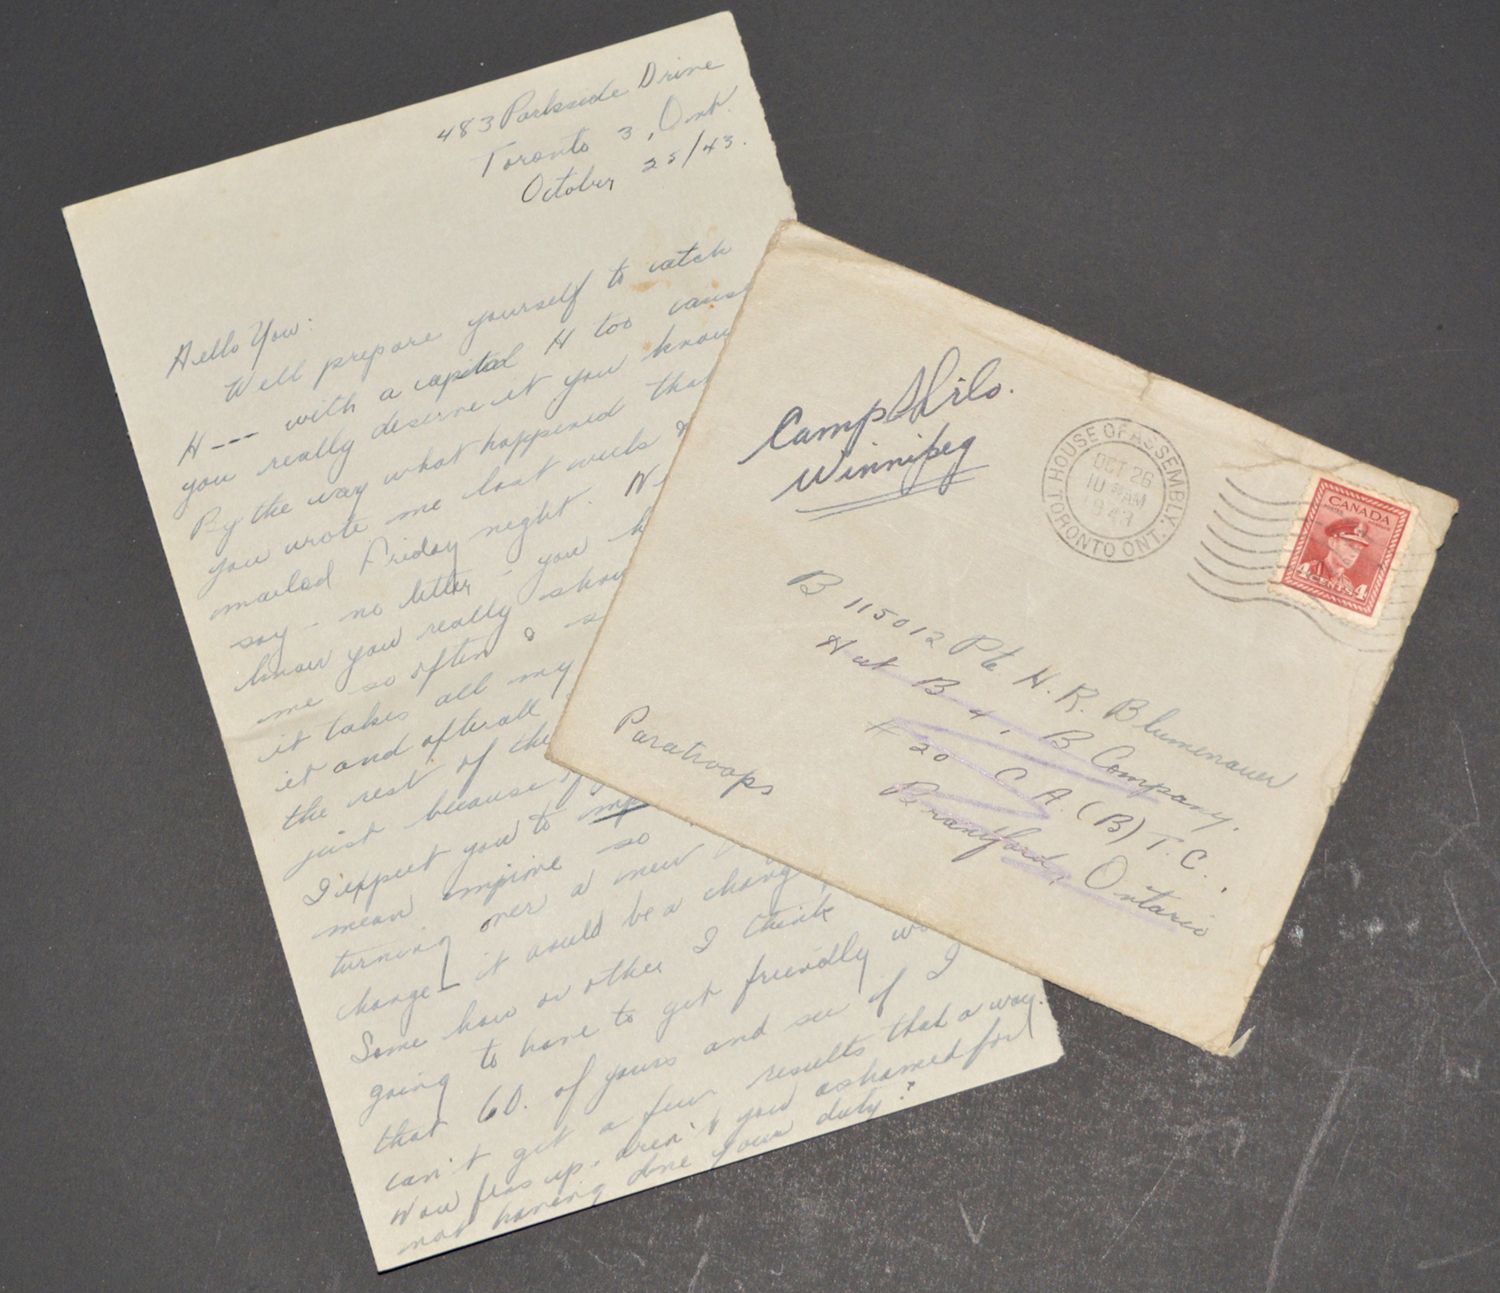 483 Parkside Drive
Toronto 3, Ont.
October 25/43.
Hello You:
Well prepare yourself to catch
H--- with a capital H too cause
you really deserve it you know
By the way what happened that
you wrote me last week
mailed Friday night.
say - no letter - you
know you really
me so often
it takes all my
it and afterall
the rest of the
just because
I expect you to
mean improve so
turning over a new
change - it would be a change
Some how or other I think
going to have to get friendly
that C.O. of yours and see if I
can't get a few results that a way.
Now fess up - aren't you ashamed for
not having done your duty?
Camp Shilo.
Winnipeg
HOUSE OF ASSEMBLY.
TORONTO ONT.
OCT 26
10 AM
1943
CANADA
POSTES POSTAGE
4 CENTS 4
B 115012 Pte H. R. Blumenauer
Hut B 4, B Company,
# 20 C. A. (B) T. C.,
Brantford, Ontario
Paratroops